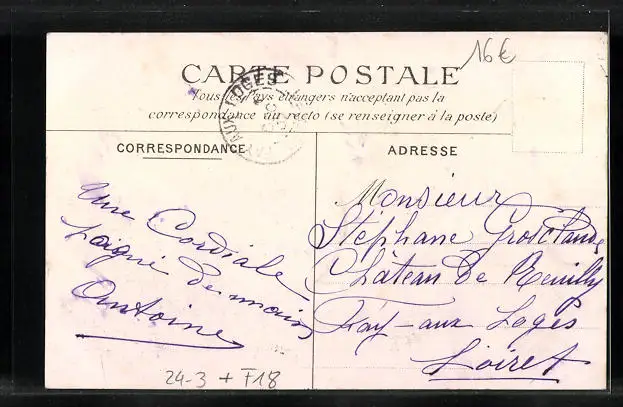 16€
CARTE POSTALE
Tous les pays étrangers n'acceptant pas la
correspondance au recto (se renseigner à la poste)
CORRESPONDANCE
ADRESSE
AUX-LOGES
Une Cordiale
poignée de mains
Antoine
Monsieur
Stéphane Grosclaude
Château de Reuilly
Fay-aux Loges
Loiret
24-3 + F18